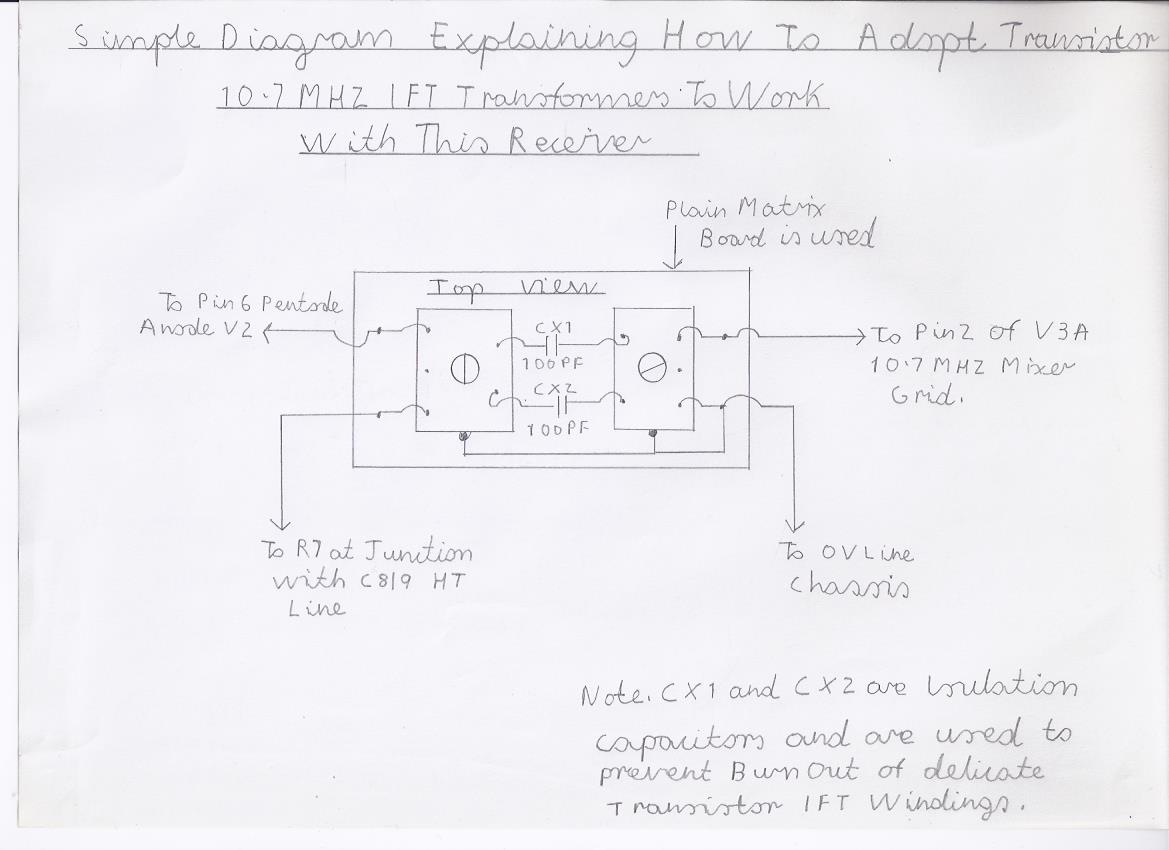 Simple Diagram Explaining How To Adopt Transistor
10.7 MHZ IFT Transformers To Work
With This Receiver
Plain Matrix
Board is used
Top View
To Pin 6 Pentode
Anode V2
CX1
100PF
CX2
100PF
To Pin 2 of V3A
10.7 MHZ Mixer
Grid.
To R7 at Junction
with C8/9 HT
Line
To OV Line
Chassis
Note. CX1 and CX2 are Insulation
capacitors and are used to
prevent Burn Out of delicate
Transistor IFT Windings.